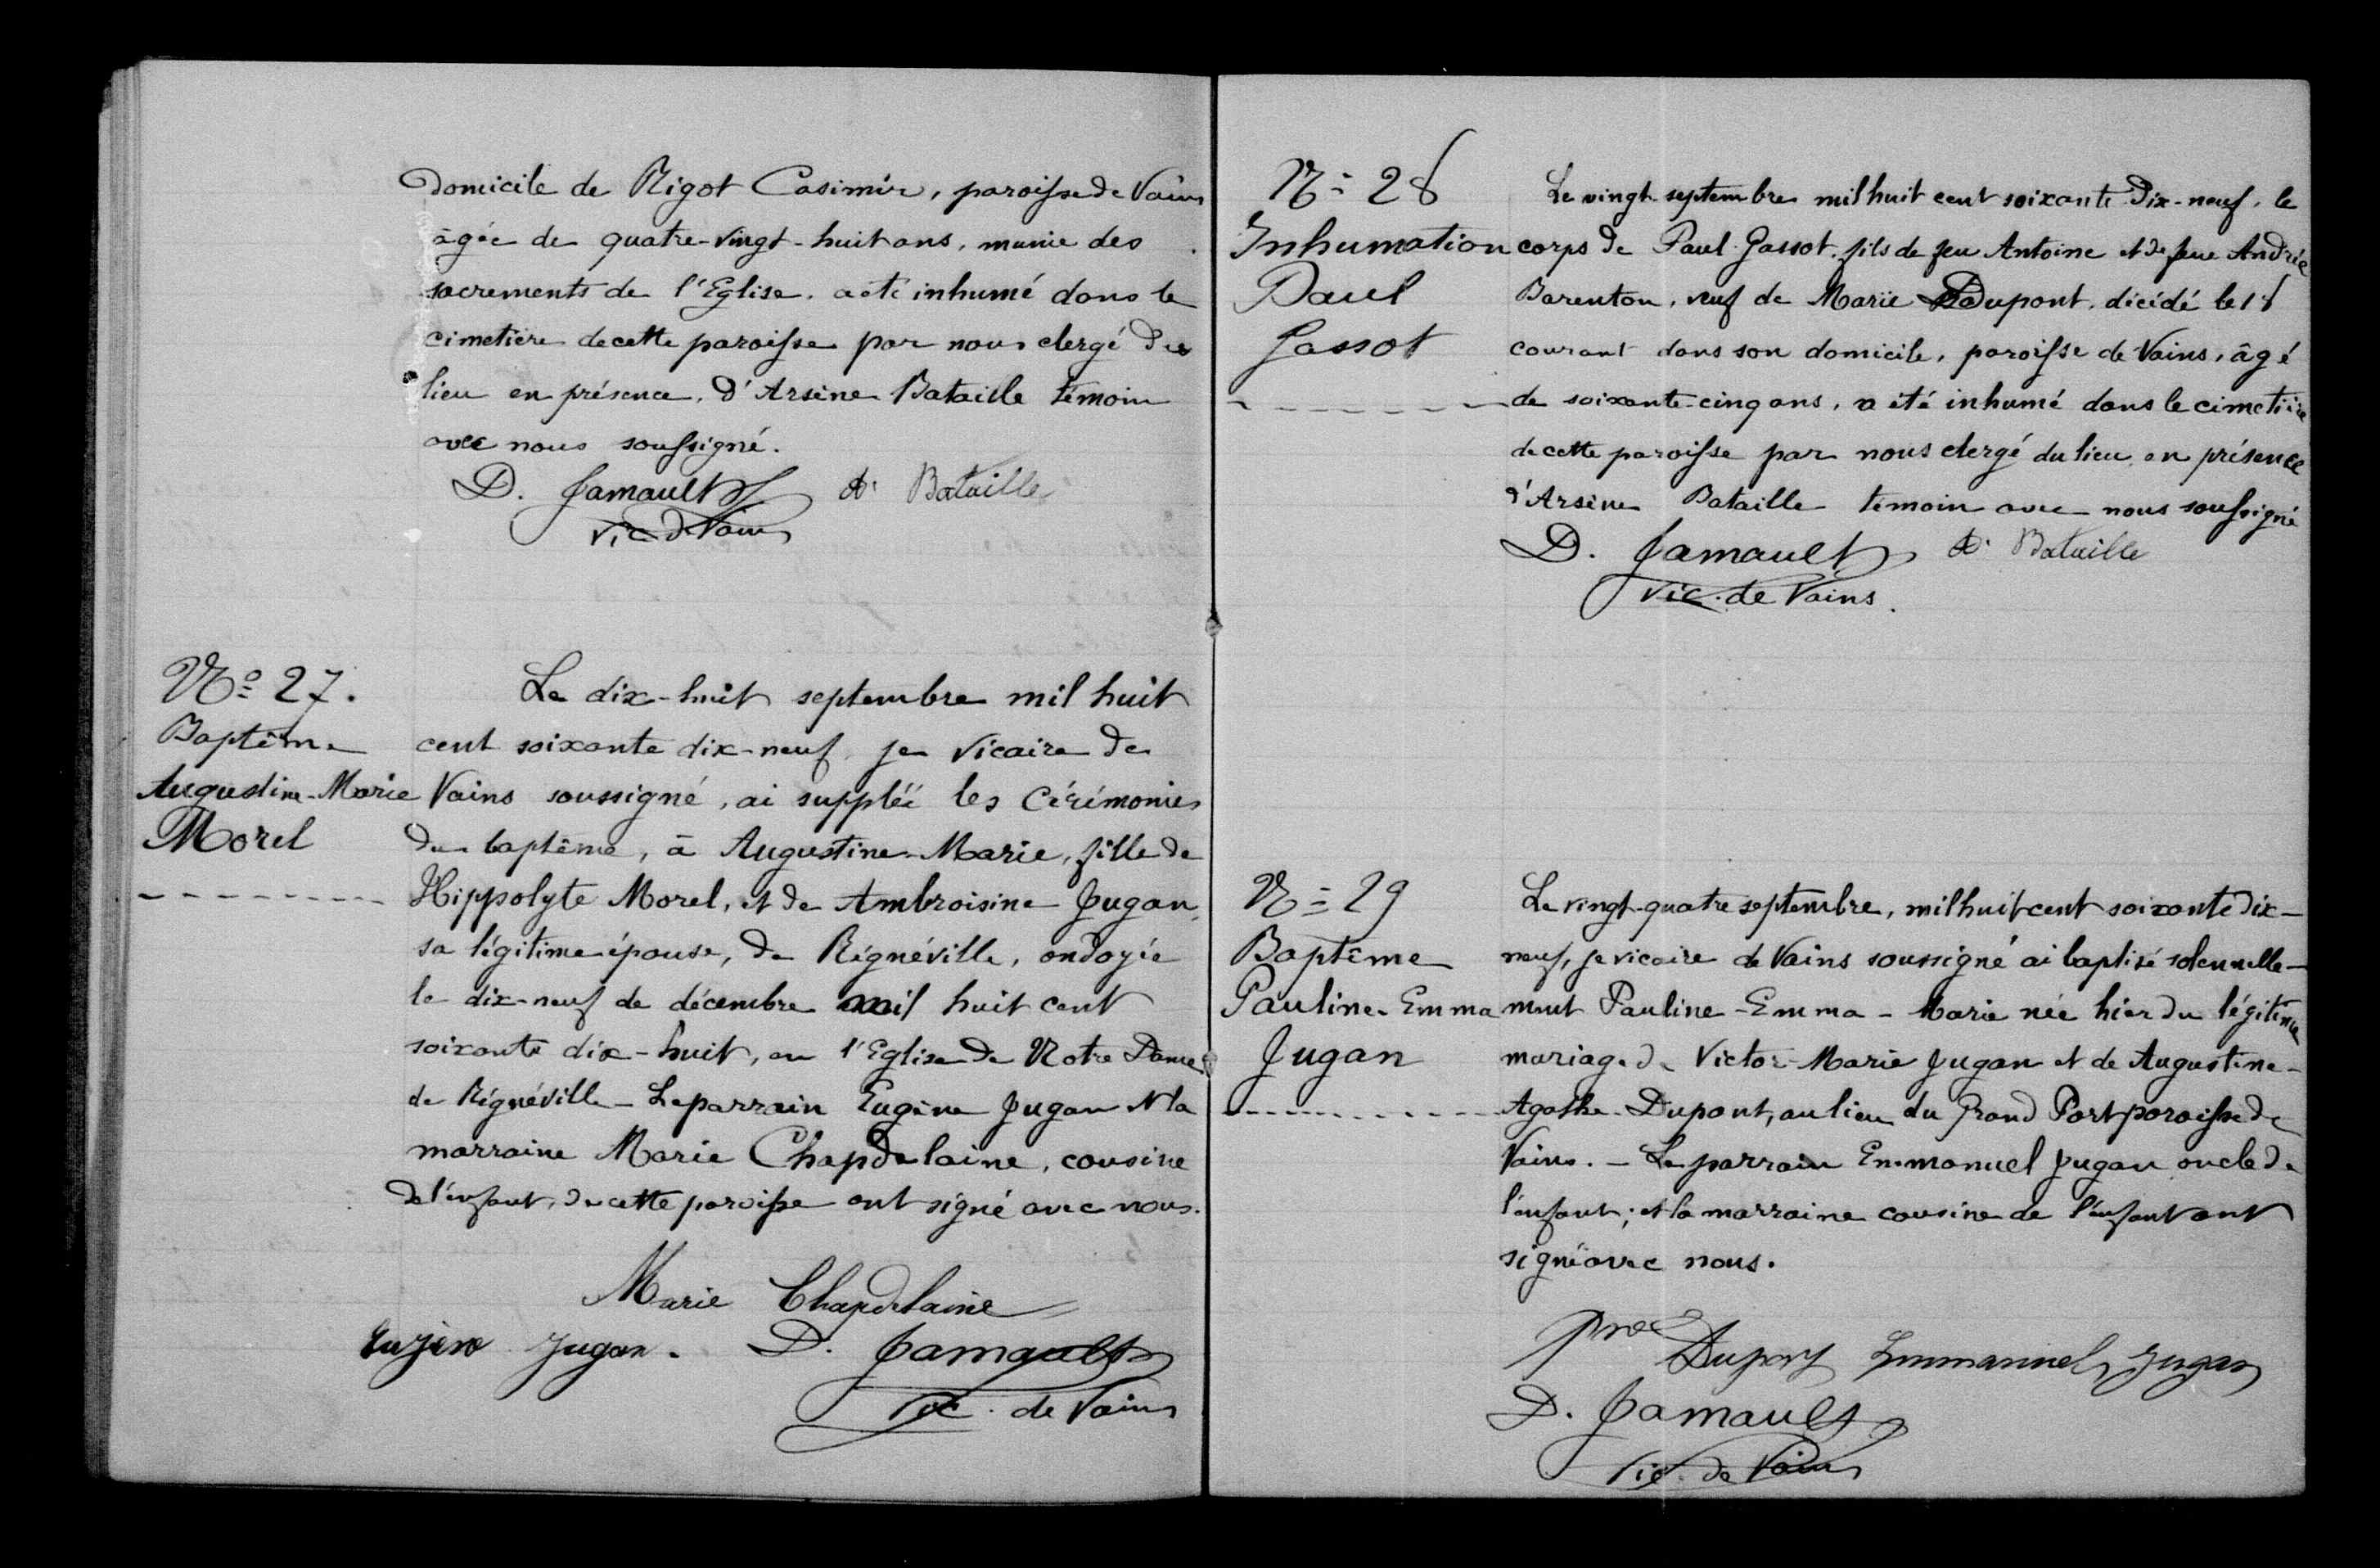 domicile de Rigot Casimir, paroisse de Vains
âgée de quatre-vingt-huit ans, munie des
sacrements de l'Eglise, a été inhumé dans le
cimetière de cette paroisse par nous clergé du
lieu en présence, d'Arsène Bataille témoin
avec nous soussigné.
D. Jamault A. Bataille
Vic de Vains
N° 27.
Baptême
Augustine-Marie
Morel
Le dix-huit septembre mil huit
cent soixante dix-neuf, je Vicaire de
Vains soussigné, ai suppléé les Cérémonies
du baptême, à Augustine-Marie, fille de
Hippolyte Morel, et de Ambroisine Jugan,
sa légitime épouse, de Régnéville, ondoyée
le dix-neuf de décembre mil huit cent
soixante dix-huit, en l'Eglise de Notre Dame
de Régnéville - Le parrain Eugène Jugan et la
marraine Marie Chapdelaine, cousine
de l'enfant, de cette paroisse ont signé avec nous.
Marie Chapdelaine
Eujène Jugan. D. Jamault
Vic. de Vains
N° 28
Inhumation
Paul
Gassot
Le vingt septembre mil huit cent soixante Dix-neuf, le
corps de Paul Gassot, fils de feu Antoine et de feue Andrée
Barenton, veuf de Marie Dupont, décédé le 18
courant dans son domicile, paroisse de Vains, âgé
de soixante-cinq ans, a été inhumé dans le cimetière
de cette paroisse par nous clergé du lieu, en présence
d'Arsène Bataille témoin avec nous soussigné
D. Jamault A. Bataille
Vic. de Vains.
N° 29
Baptême
Pauline-Emma
Jugan
Le vingt-quatre septembre, mil huit cent soixante dix-
neuf, je vicaire de Vains soussigné ai baptisé solennelle-
ment Pauline-Emma-Marie née hier du légitime
mariage de Victor-Marie Jugan et de Augustine-
Agathe Dupont, au lieu du Grand Port paroisse de
Vains. - Le parrain Emmanuel Jugan oncle de
l'enfant; et la marraine cousine de l'enfant ont
signé avec nous.
Dupont Emmanuel Jugan
D. Jamault
Vic. de Vains